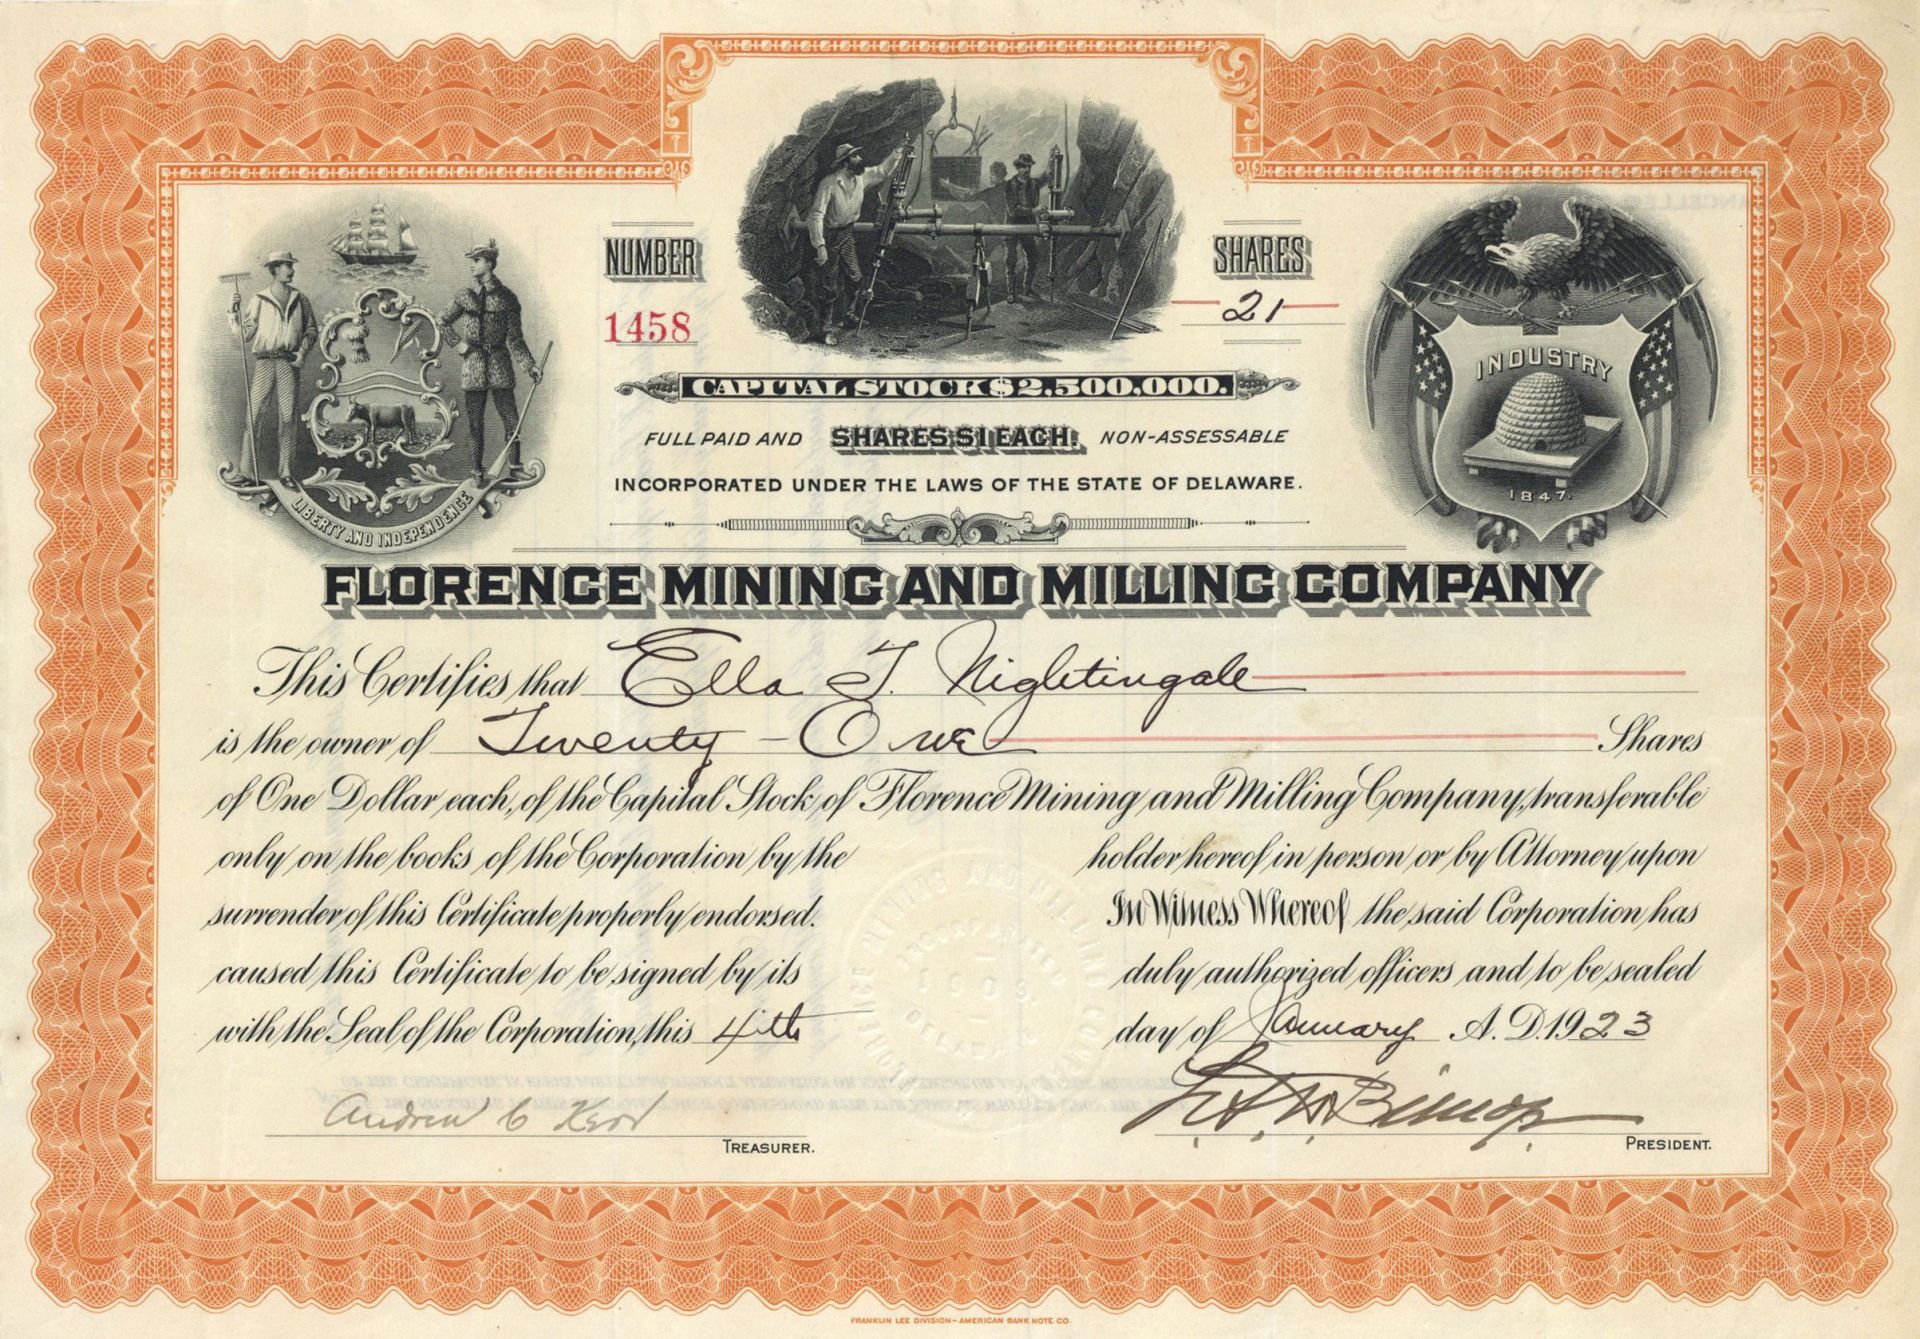 NUMBER
1458
SHARES
21
LIBERTY AND INDEPENDENCE
INDUSTRY
1847.
CAPITAL STOCK $2,500,000.
FULL PAID AND SHARES $1 EACH. NON-ASSESSABLE
INCORPORATED UNDER THE LAWS OF THE STATE OF DELAWARE.
FLORENCE MINING AND MILLING COMPANY
This Certifies that Ella T. Nightingale
is the owner of Twenty-One Shares
of One Dollar each, of the Capital Stock of Florence Mining and Milling Company, transferable
only on the books of the Corporation by the holder hereof in person or by Attorney upon
surrender of this Certificate properly endorsed. In Witness Whereof the said Corporation has
caused this Certificate to be signed by its duly authorized officers and to be sealed
with the Seal of the Corporation, this 4th day of January A.D. 1923
Andrew C
TREASURER.
PRESIDENT.
FRANKLIN LEE DIVISION - AMERICAN BANK NOTE CO.